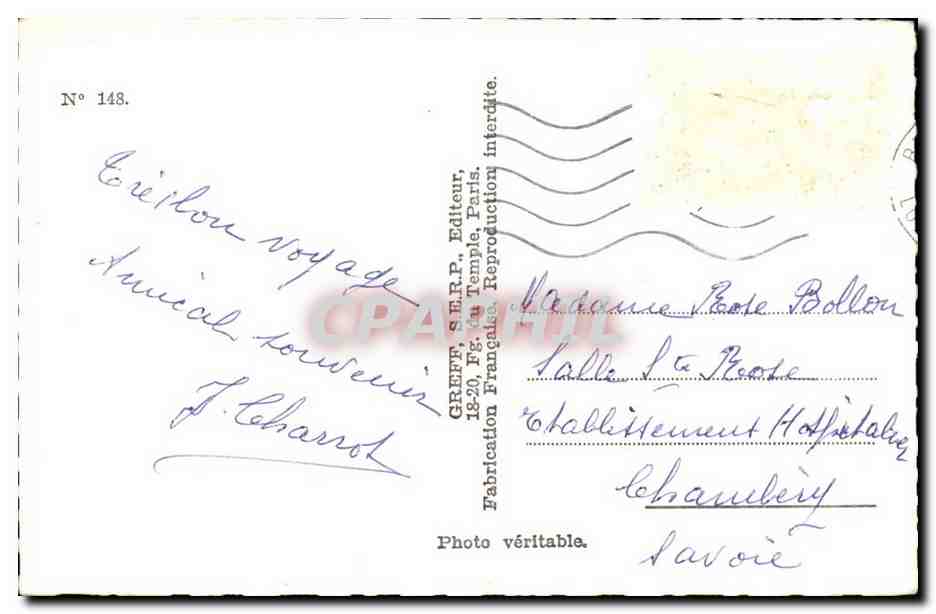 N° 148.
Très bon voyage
Amical souvenir
J. Charrot
GREFF, S.E.R.P., Editeur,
18-20, Fg. du Temple, Paris.
Fabrication Française. Reproduction interdite.
CPAPHIL
Madame Rose Bollon
Salle Ste Rose
Etablissement Hospitalier
Chambéry
Savoie
Photo véritable.